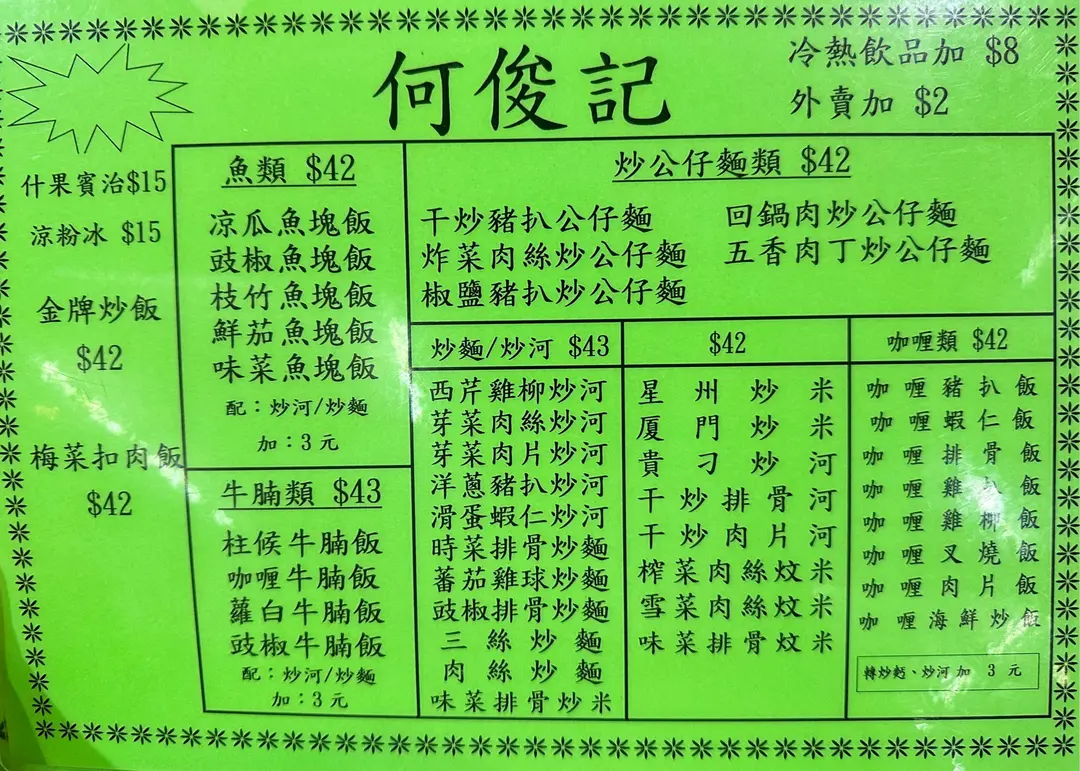 何俊記
冷熱飲品加 $8
外賣加 $2
什果賓治$15
涼粉冰 $15
金牌炒飯
$42
梅菜扣肉飯
$42
魚類 $42
凉瓜魚塊飯
豉椒魚塊飯
枝竹魚塊飯
鮮茄魚塊飯
味菜魚塊飯
配：炒河/炒麵
加：3元
牛腩類 $43
柱候牛腩飯
咖喱牛腩飯
蘿白牛腩飯
豉椒牛腩飯
配：炒河/炒麵
加：3元
炒公仔麵類 $42
干炒豬扒公仔麵
炸菜肉絲炒公仔麵
椒鹽豬扒炒公仔麵
回鍋肉炒公仔麵
五香肉丁炒公仔麵
炒麵/炒河 $43
西芹雞柳炒河
芽菜肉絲炒河
芽菜肉片炒河
洋蔥豬扒炒河
滑蛋蝦仁炒河
時菜排骨炒麵
蕃茄雞球炒麵
豉椒排骨炒麵
三絲炒麵
肉絲炒麵
味菜排骨炒米
$42
星州炒米
厦門炒米
貴刁炒河
干炒排骨河
干炒肉片河
榨菜肉絲炆米
雪菜肉絲炆米
味菜排骨炆米
咖喱類 $42
咖喱豬扒飯
咖喱蝦仁飯
咖喱排骨飯
咖喱雞扒飯
咖喱雞柳飯
咖喱叉燒飯
咖喱肉片飯
咖喱海鮮炒飯
轉炒麪、炒河加 3 元